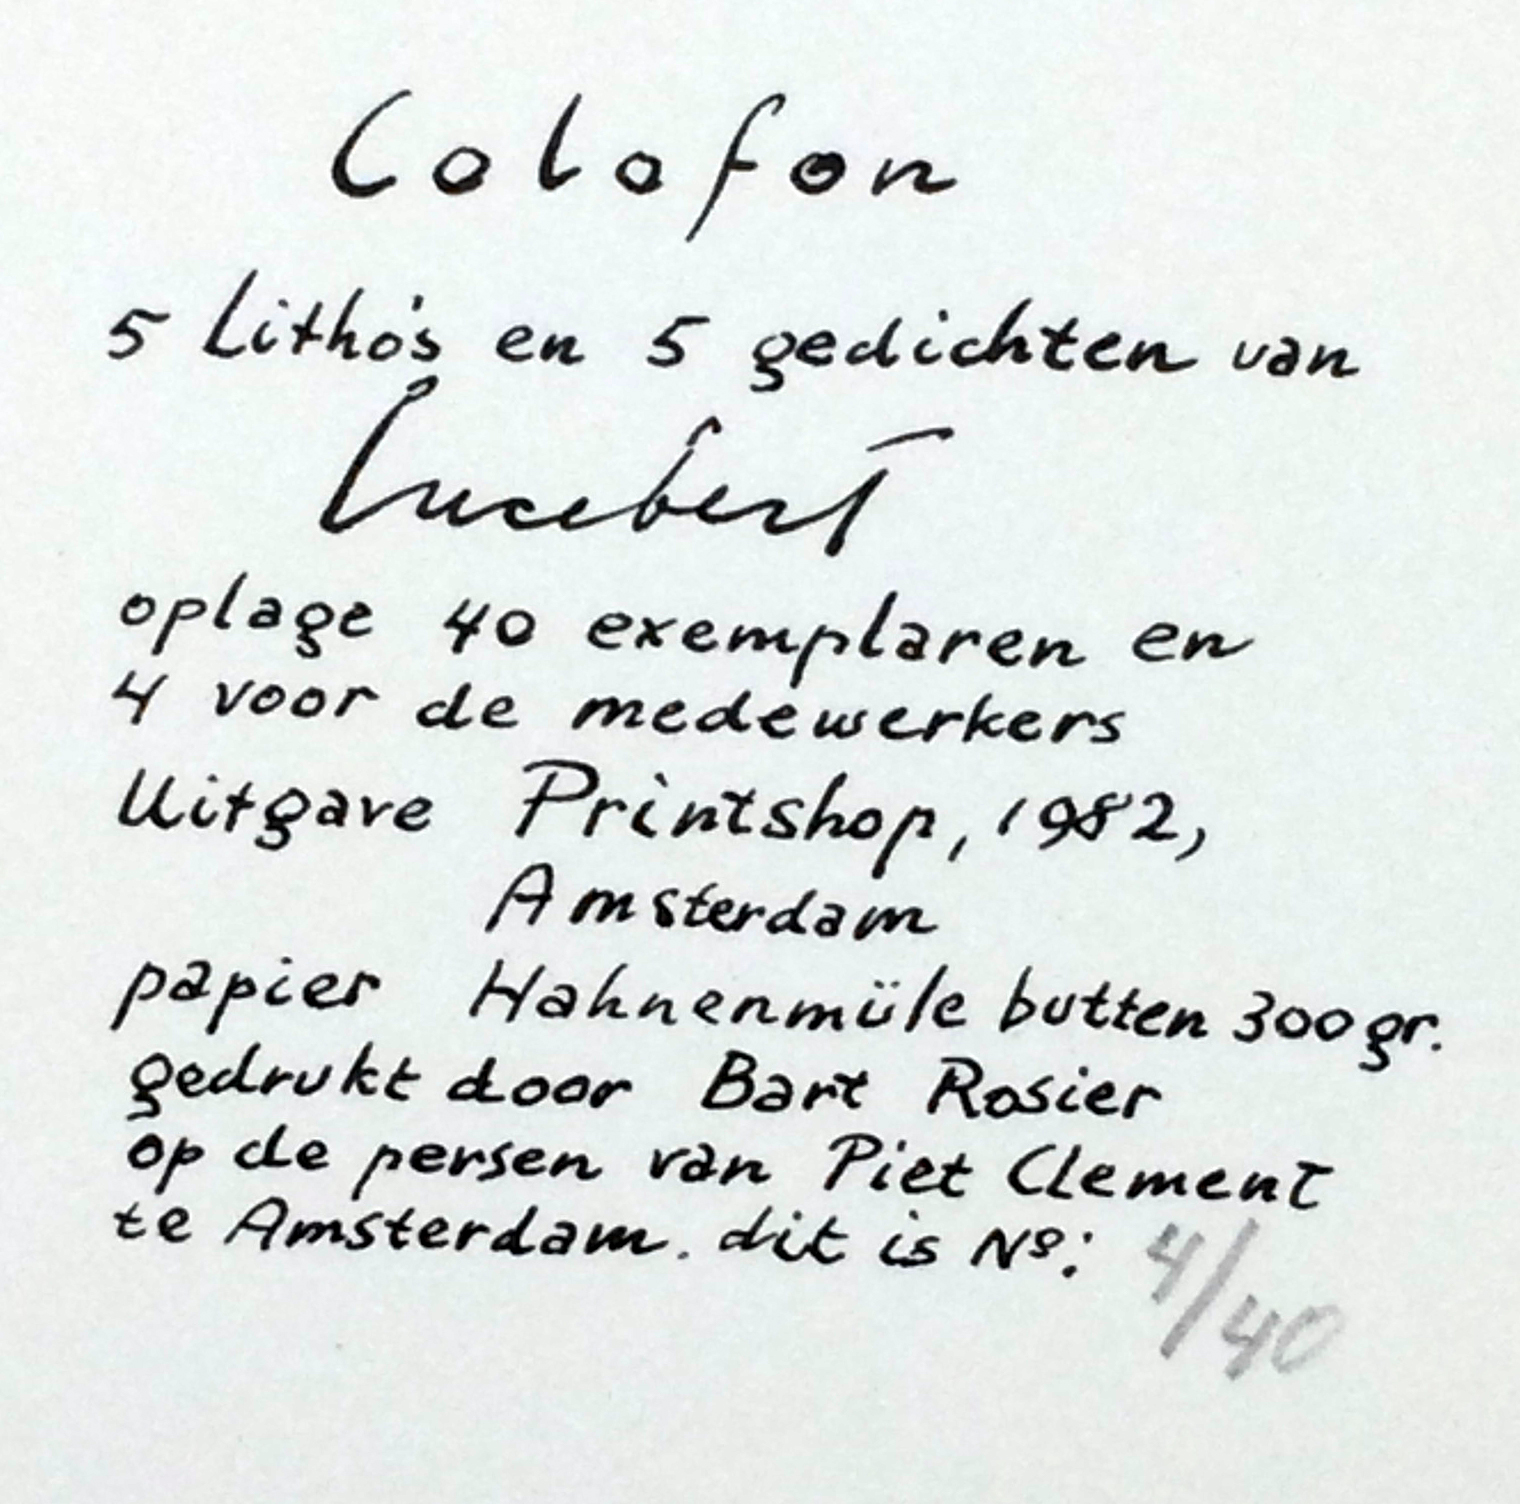 Colofon
5 Litho's en 5 gedichten van
Lucebert
oplage 40 exemplaren en
4 voor de medewerkers
Uitgave Printshop, 1982,
Amsterdam
papier Hahnenmüle butten 300gr.
gedrukt door Bart Rosier
op de persen van Piet Clement
te Amsterdam. dit is Nº: 4/40